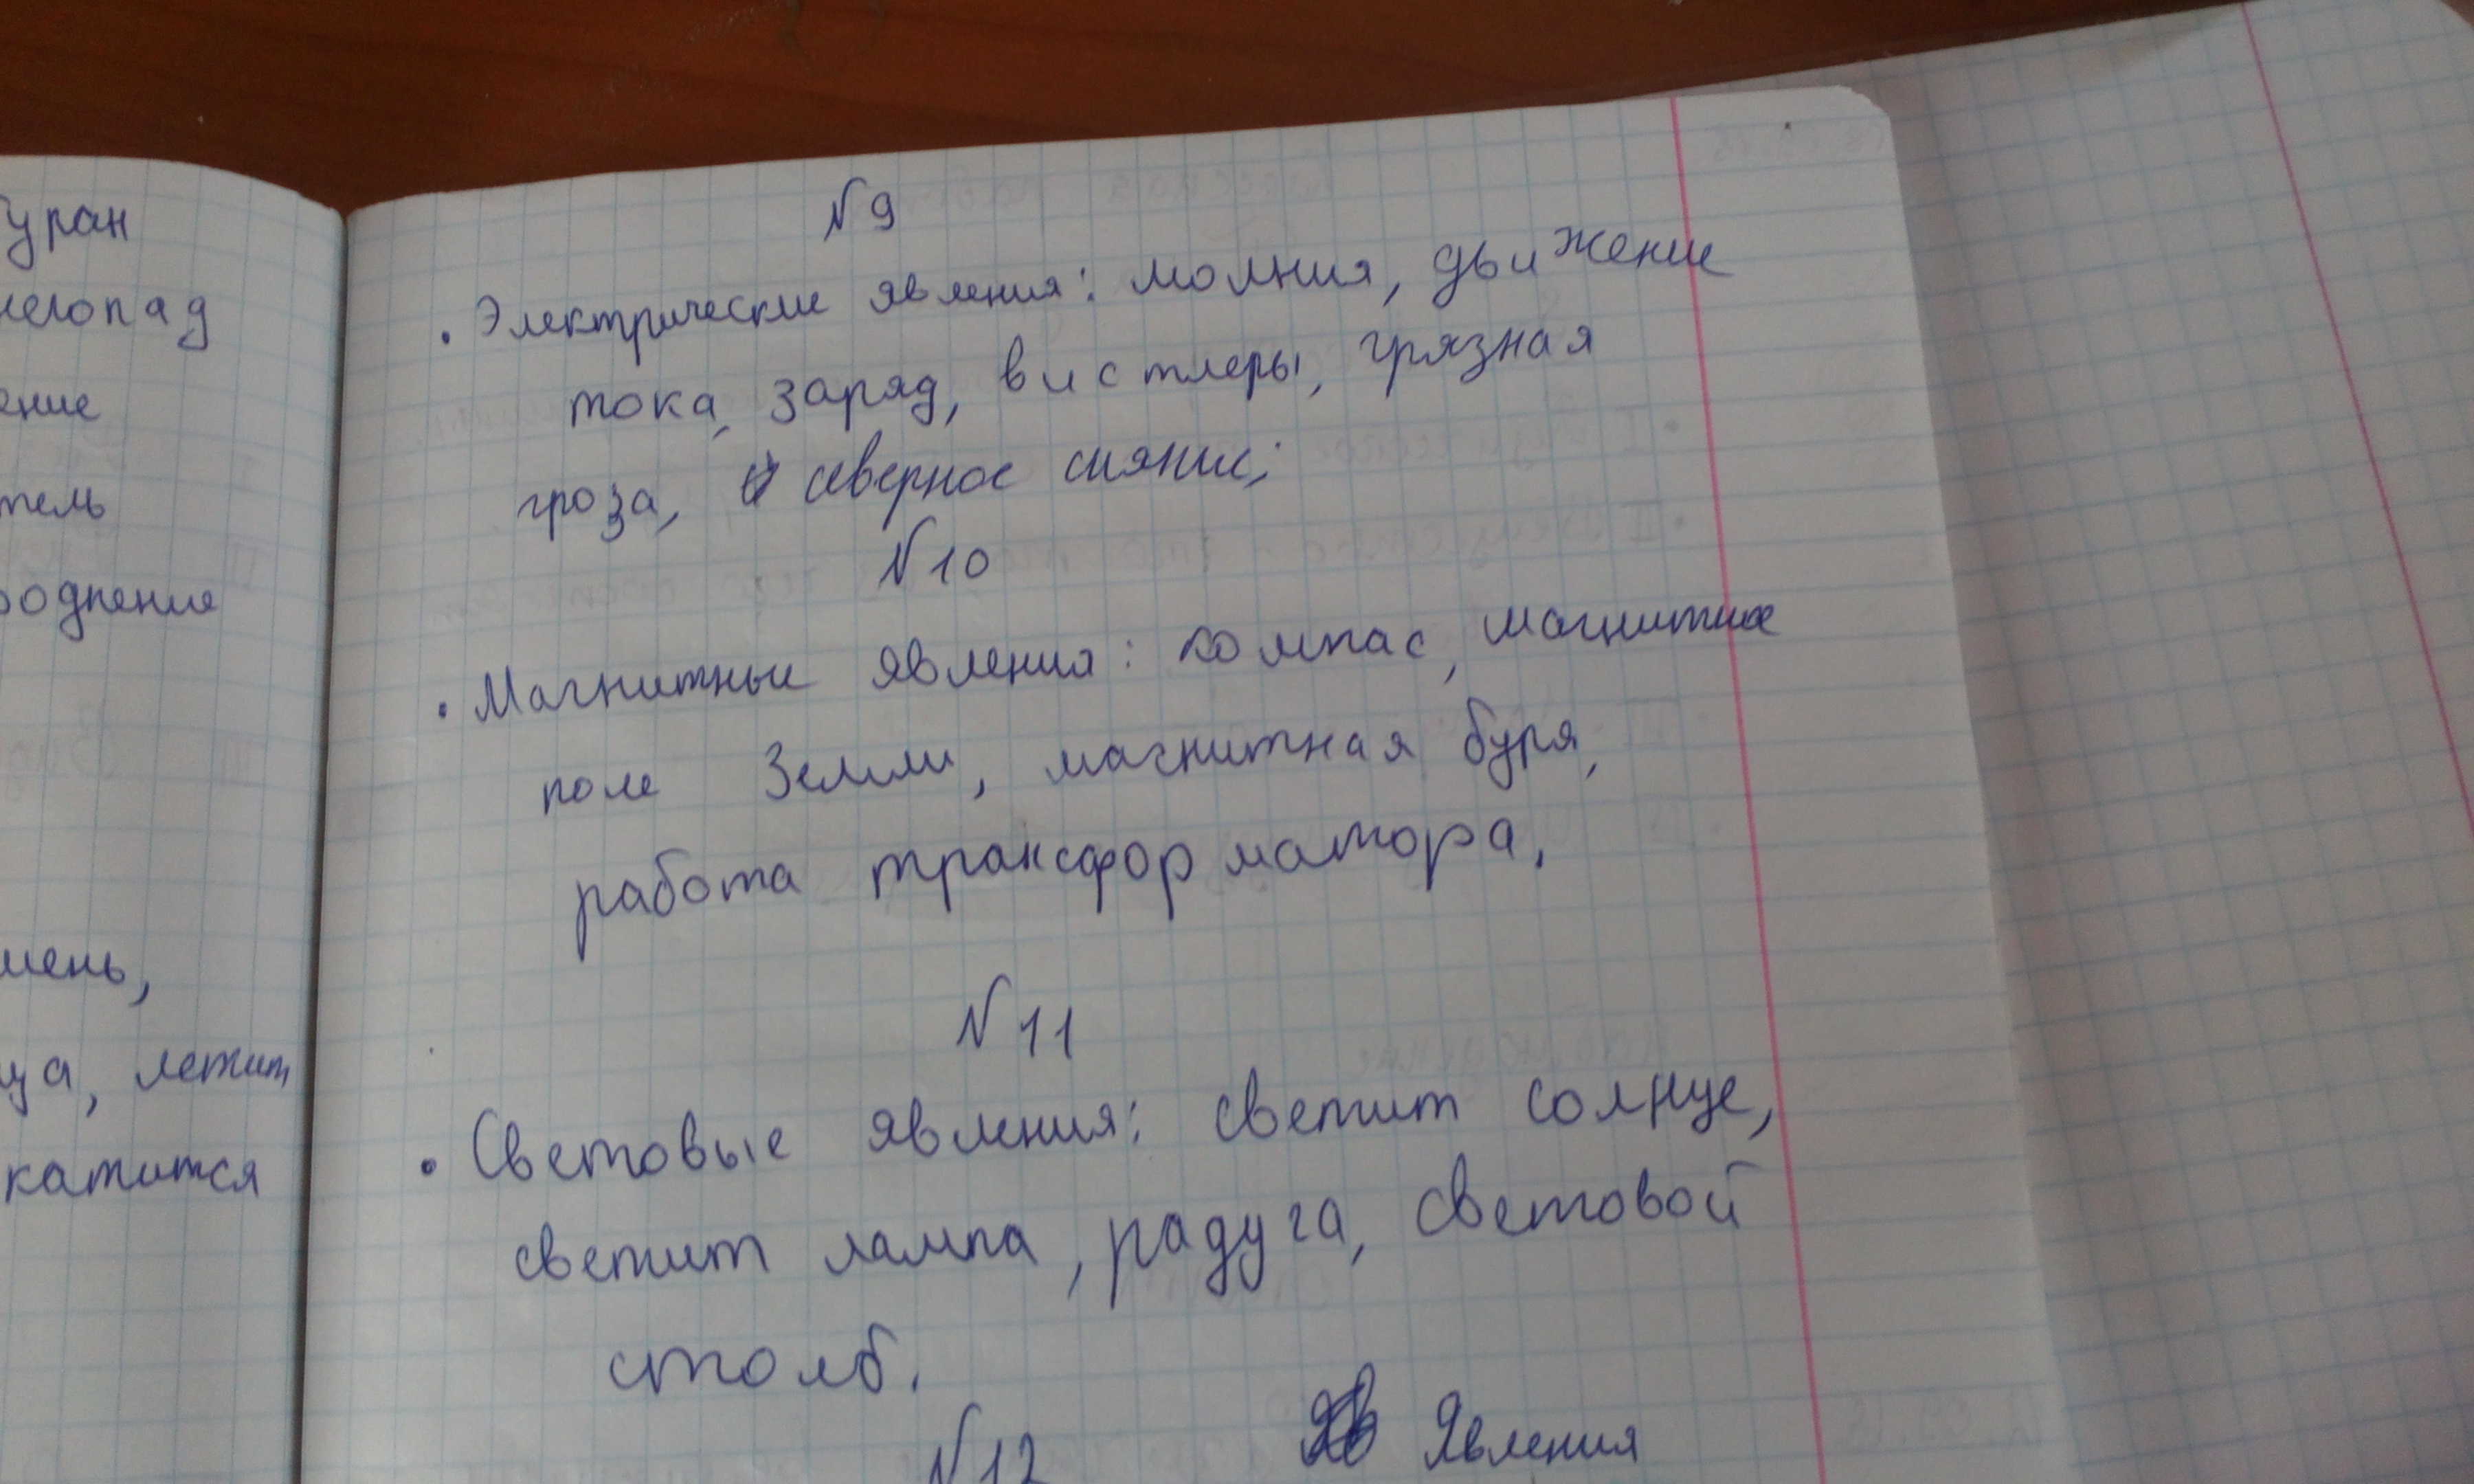 уран
ение
катится
летит
№9
• Электрические явления: молния, движение
тока, заряд, вистлеры, грязная
гроза, северное сияние;
№10
• Магнитные явления: компас, магнитное
поле Земли, магнитная буря,
работа трансформатора,
№11
• Световые явления: светит солнце,
светит лампа, радуга, световой
столб.
№12 Явления